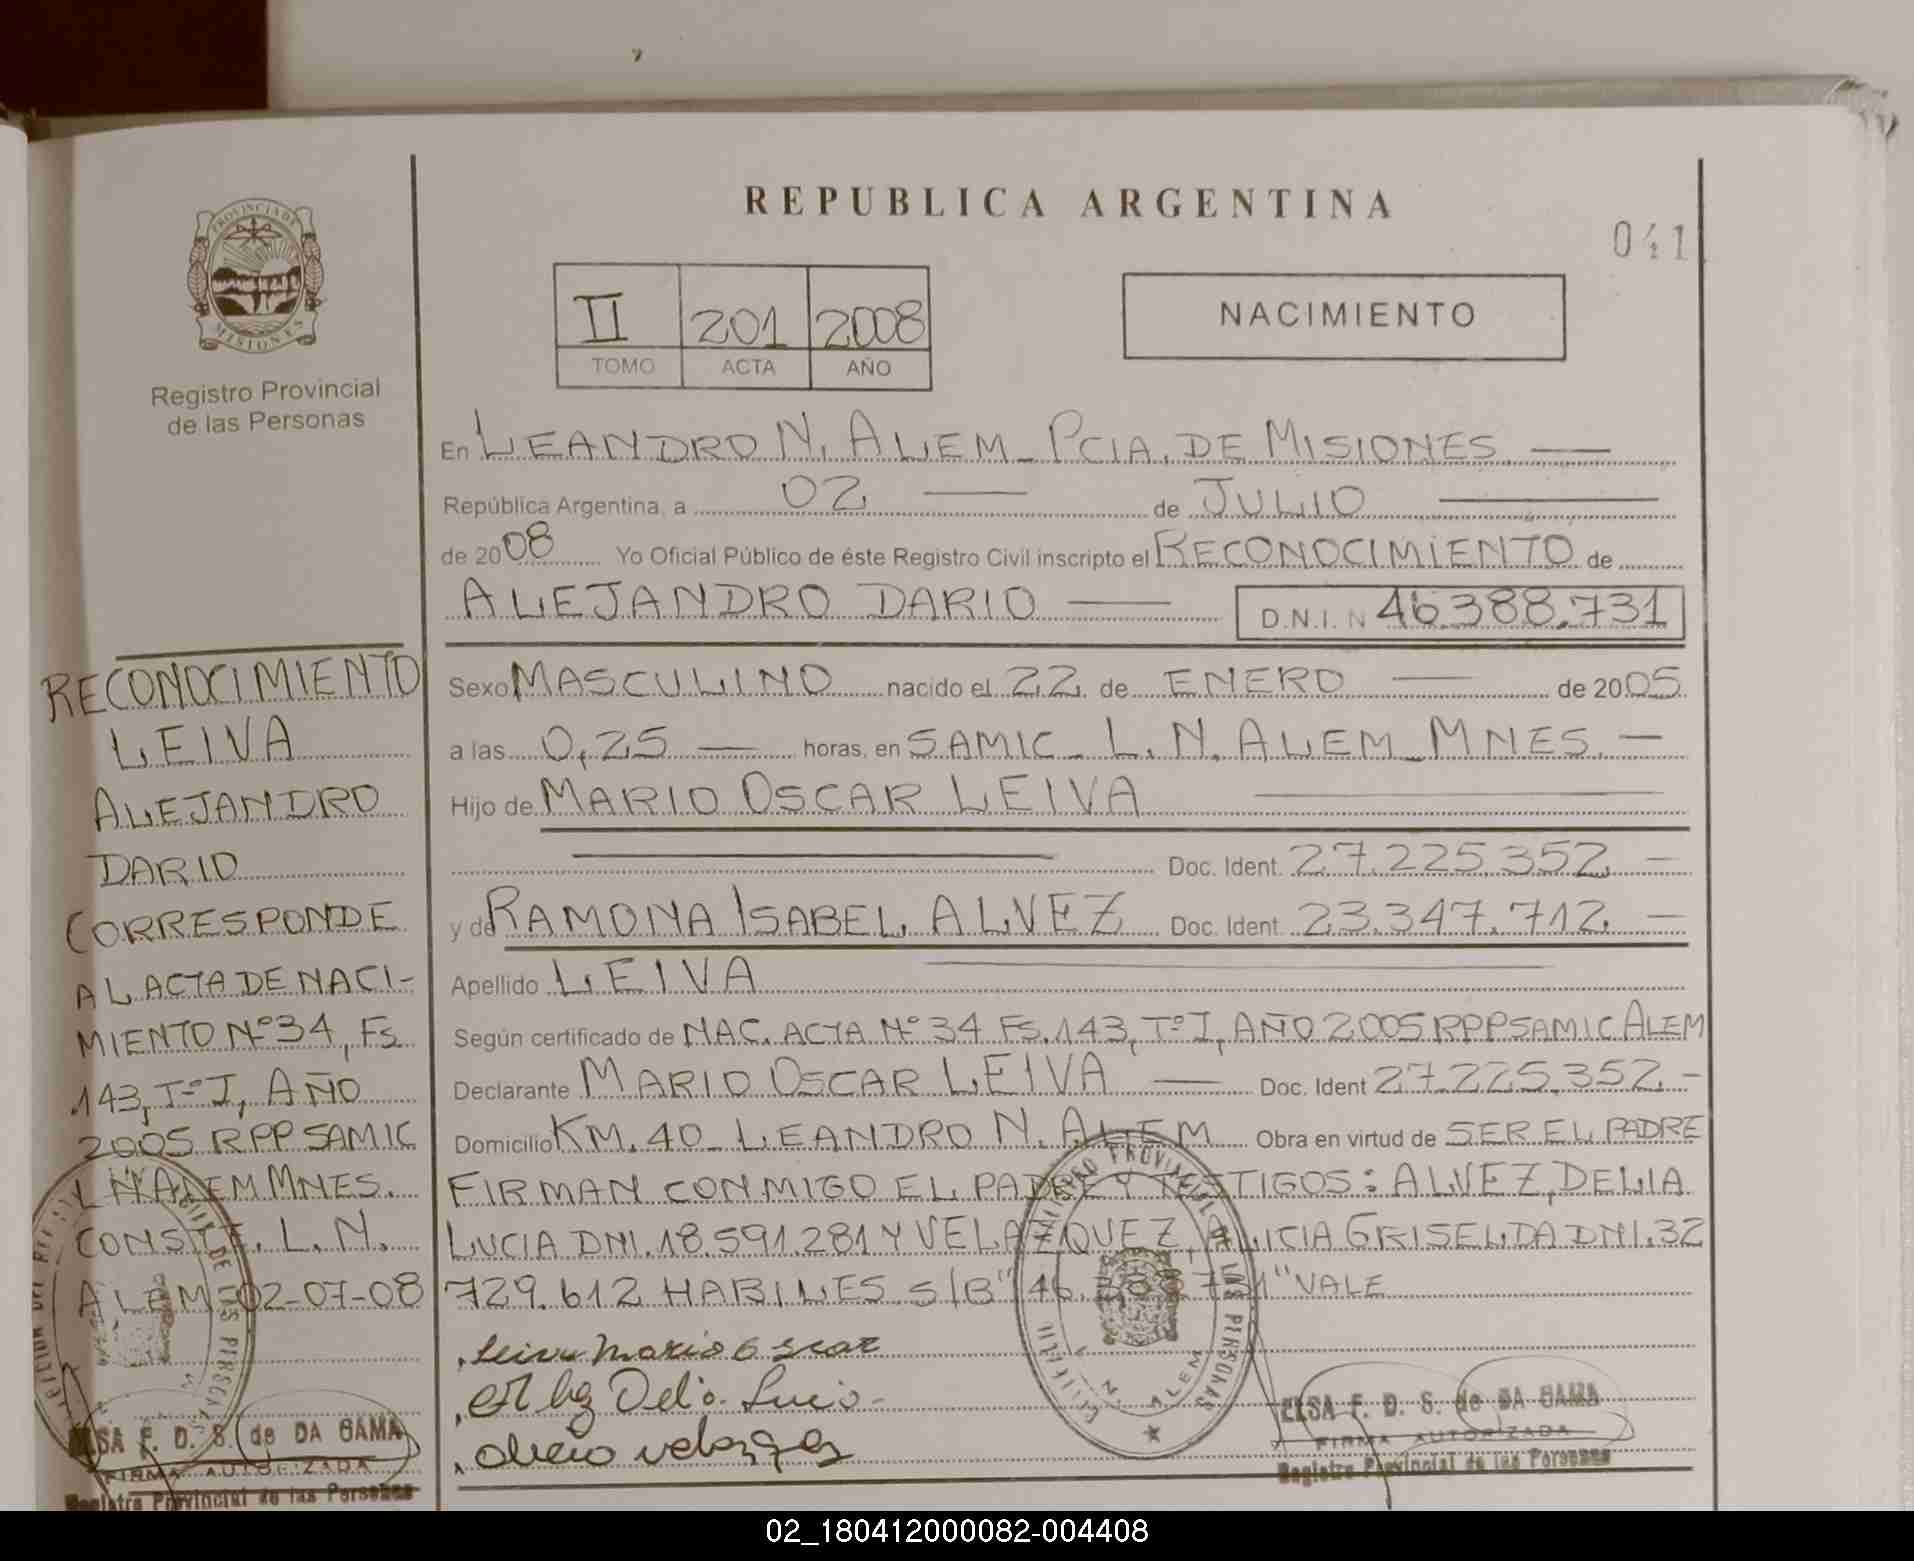 REPUBLICA ARGENTINA
041
PROVINCIA DE
MISIONES
Registro Provincial
de las Personas
II 201 2008
TOMO ACTA AÑO
NACIMIENTO
En LEANDRO N. ALEM - PCIA. DE MISIONES
República Argentina, a 02 de JULIO
de 2008 Yo Oficial Público de éste Registro Civil inscripto el RECONOCIMIENTO de
ALEJANDRO DARIO D.N.I. N 46.388.731
Sexo MASCULINO nacido el 22 de ENERO de 2005
a las 0,25 horas, en SAMIC - L. N. ALEM - MNES.
Hijo de MARIO OSCAR LEIVA
Doc. Ident. 27.225.352
y de RAMONA ISABEL ALVEZ Doc. Ident. 23.347.712
Apellido LEIVA
Según certificado de NAC. ACTA Nº 34 Fs. 143, Tº I, AÑO 2005 RPP SAMIC ALEM
Declarante MARIO OSCAR LEIVA Doc. Ident 27.225.352
Domicilio KM. 40 - LEANDRO N. ALEM Obra en virtud de SER EL PADRE
FIRMAN CONMIGO EL PADRE Y TESTIGOS: ALVEZ, DELIA
LUCIA DNI. 18.591.281 Y VELAZQUEZ, ALICIA GRISELDA DNI. 32
729.612 HABILES S/B "46.388.731" VALE
Leiva Mario Oscar
RECONOCIMIENTO
LEIVA
ALEJANDRO
DARIO
CORRESPONDE
AL ACTA DE NACI-
MIENTO Nº 34, Fs
143, Tº I, AÑO
2005 RPP SAMIC
L N ALEM MNES.
CONSTE. L. N.
ALEM 02-07-08
ELSA F. D. S. de DA GAMA
FIRMA AUTORIZADA
Registro Provincial de las Personas
L. N. ALEM
ELSA F. D. S. de DA GAMA
FIRMA AUTORIZADA
Registro Provincial de las Personas
02_180412000082-004408